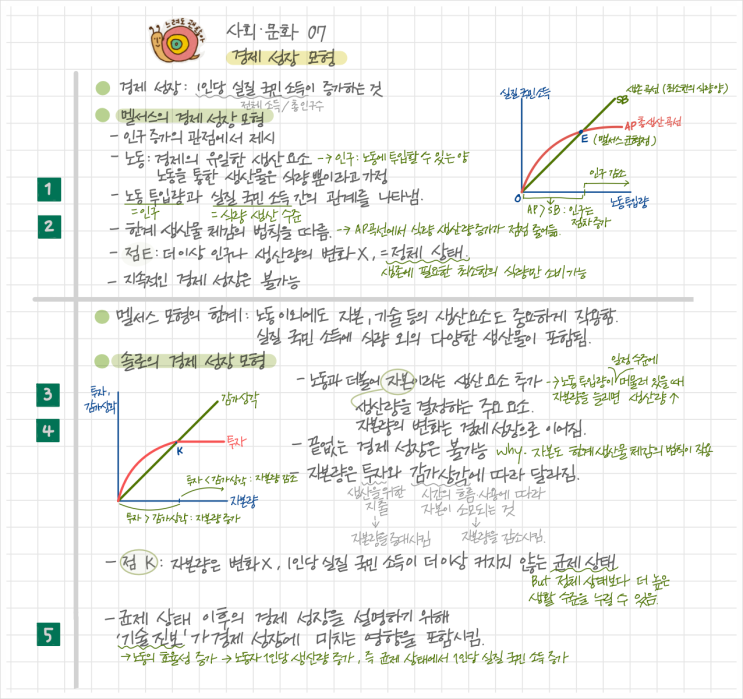 느려도 괜찮아
사회·문화 07
경제 성장 모형
경제 성장: 1인당 실질 국민 소득이 증가하는 것
전체 소득/총 인구수
멜서스의 경제 성장 모형
- 인구 증가의 관점에서 제시
- 노동: 경제의 유일한 생산 요소 → 인구: 노동에 투입할 수 있는 양
노동을 통한 생산물은 식량 뿐이라고 가정
1
- 노동 투입량과 실질 국민 소득 간의 관계를 나타냄.
=인구 = 식량 생산 수준
2
- 한계 생산물 체감의 법칙을 따름. → AP곡선에서 식량 생산량 증가가 점점 줄어듦.
- 점E: 더 이상 인구나 생산량의 변화 X, = 정체 상태.
생존에 필요한 최소한의 식량만 소비 가능
- 지속적인 경제 성장은 불가능
실질 국민소득
생존 곡선 (최소한의 식량 양)
SB
AP 총생산 곡선
E (멜서스 균형점)
인구 감소
O
노동투입량
AP > SB : 인구는
점차 증가
멜서스 모형의 한계: 노동 이외에도 자본, 기술 등의 생산요소도 중요하게 작용함.
실질 국민 소득에 식량 외의 다양한 생산물이 포함됨.
솔로의 경제 성장 모형
일정 수준에
3
- 노동과 더불어 자본이라는 생산 요소 추가 → 노동 투입량이 머물러 있을 때
생산량을 결정하는 주요 요소. 자본량을 늘리면 생산량 ↑
4
자본량의 변화는 경제 성장으로 이어짐.
- 끝없는 경제 성장은 불가능 why. 자본도 한계 생산물 체감의 법칙이 적용
- 자본량은 투자와 감가상각에 따라 달라짐.
생산을 위한 시간의 흐름·사용에 따라
지출 자본이 소모되는 것
↓ ↓
자본량을 증대시킴 자본량을 감소시킴.
투자,
감가상각
감가상각
투자
K
투자 < 감가상각 : 자본량 감소
자본량
투자 > 감가상각 : 자본량 증가
- 점 K : 자본량은 변화 X, 1인당 실질 국민 소득이 더 이상 커지지 않는 균제 상태
But 정체 상태보다 더 높은
생활 수준을 누릴 수 있음
- 균제 상태 이후의 경제 성장을 설명하기 위해
5
'기술 진보'가 경제 성장에 미치는 영향을 포함시킴.
→ 노동의 효율성 증가 → 노동자 1인당 생산량 증가, 즉 균제 상태에서 1인당 실질 국민 소득 증가